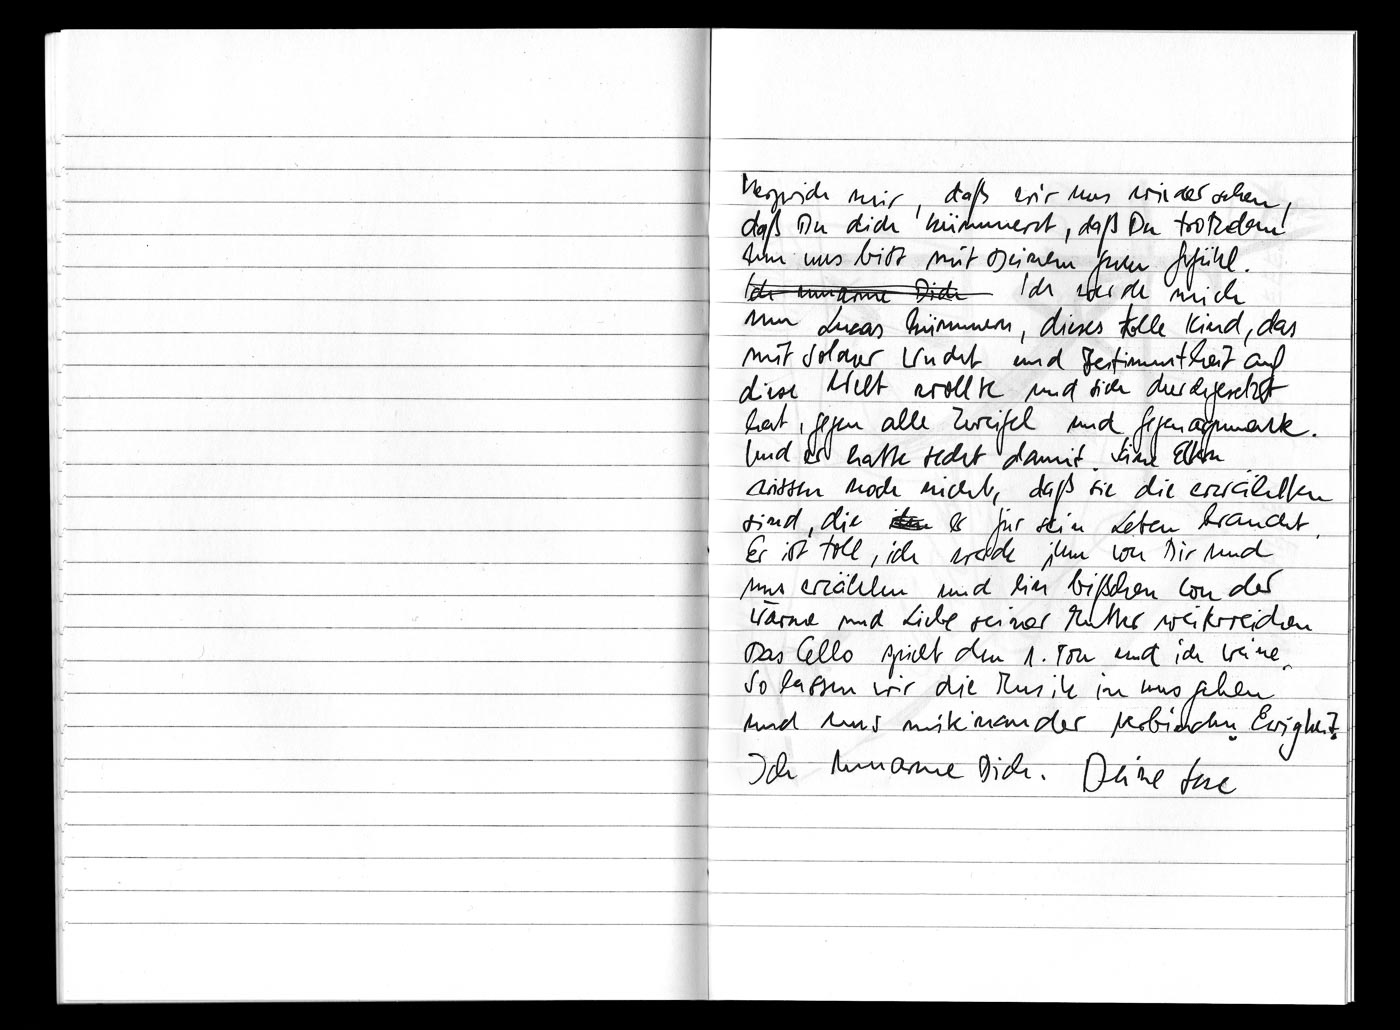 Versprich mir, daß wir uns wiedersehen,
daß Du dich kümmerst, daß Du trotzdem
um uns bist mit Deinem guten Gefühl.
Ich umarme Dich Ich werde mich
um Lucas kümmern, dieses tolle Kind, das
mit solcher Wucht und Bestimmtheit auf
diese Welt wollte und sich durchgesetzt
hat, gegen alle Zweifel und Gegenargumente.
Und er hatte recht damit. Seine Eltern
wissen noch nicht, daß sie die erzählten
sind, die er für sein Leben braucht.
Er ist toll, ich werde ihm von Dir und
uns erzählen und ein bißchen von der
Wärme und Liebe seiner Mutter weiterreichen
Das Cello spielt den 1. Ton und ich weine.
So lassen wir die Musik in uns gehen
und uns miteinander verbinden. Ewigkeit.
Ich umarme Dich. Deine